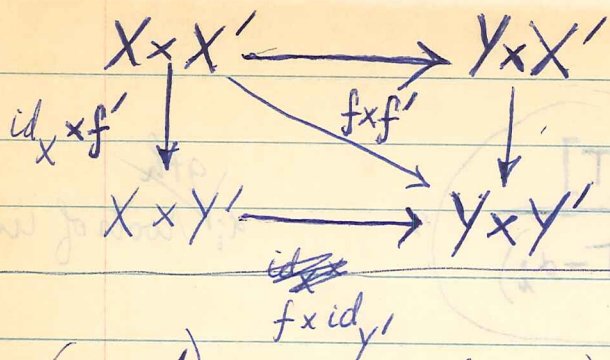 X × X′ Y × X′
id_X × f′ f × f′
X × Y′ Y × Y′
f × id_Y′